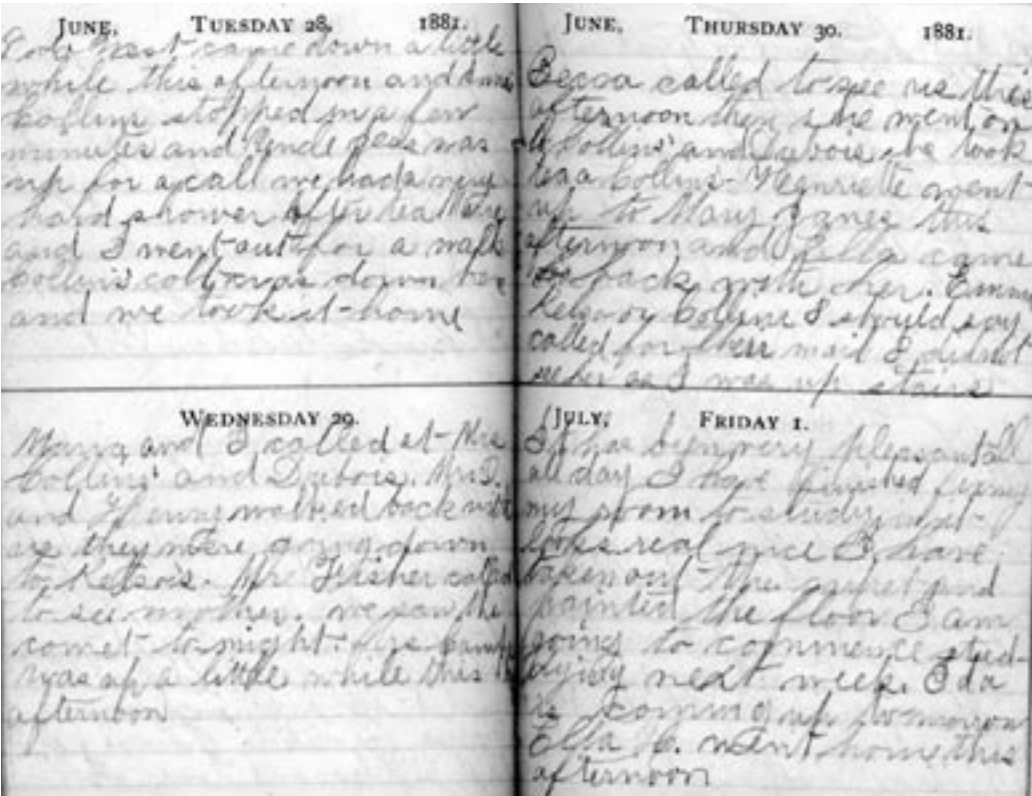 JUNE, TUESDAY 28, 1881.
West came down a little
while this afternoon and
Collins stopped in a few
minutes and Uncle was
up for a call we had a very
hard shower after tea
and I went out for a walk
Collins' colt was down
and we took it home
WEDNESDAY 29.
and I called at Mrs
Collins' and Dubois. Mrs D.
and walked back with
they were going down
to Kelsois. Mrs Fisher called
to see mother. We saw the
comet tonight. Mrs
was up a little while this
afternoon
JUNE, THURSDAY 30. 1881.
called to see us this
afternoon then she went on
Collins' and Dubois she took
tea a Collins - Henriette went
up to Mary Janes this
afternoon and Ella came
back with her.
Collins I should say
called for their mail I didnt
see her as I was up stairs
JULY, FRIDAY 1.
It has been very pleasant
all day I have finished
my room to study in it
looks real nice I have
taken out the carpet and
painted the floor I am
going to commence stud-
ying next week. Ida
is coming up tomorrow
Ella went home this
afternoon